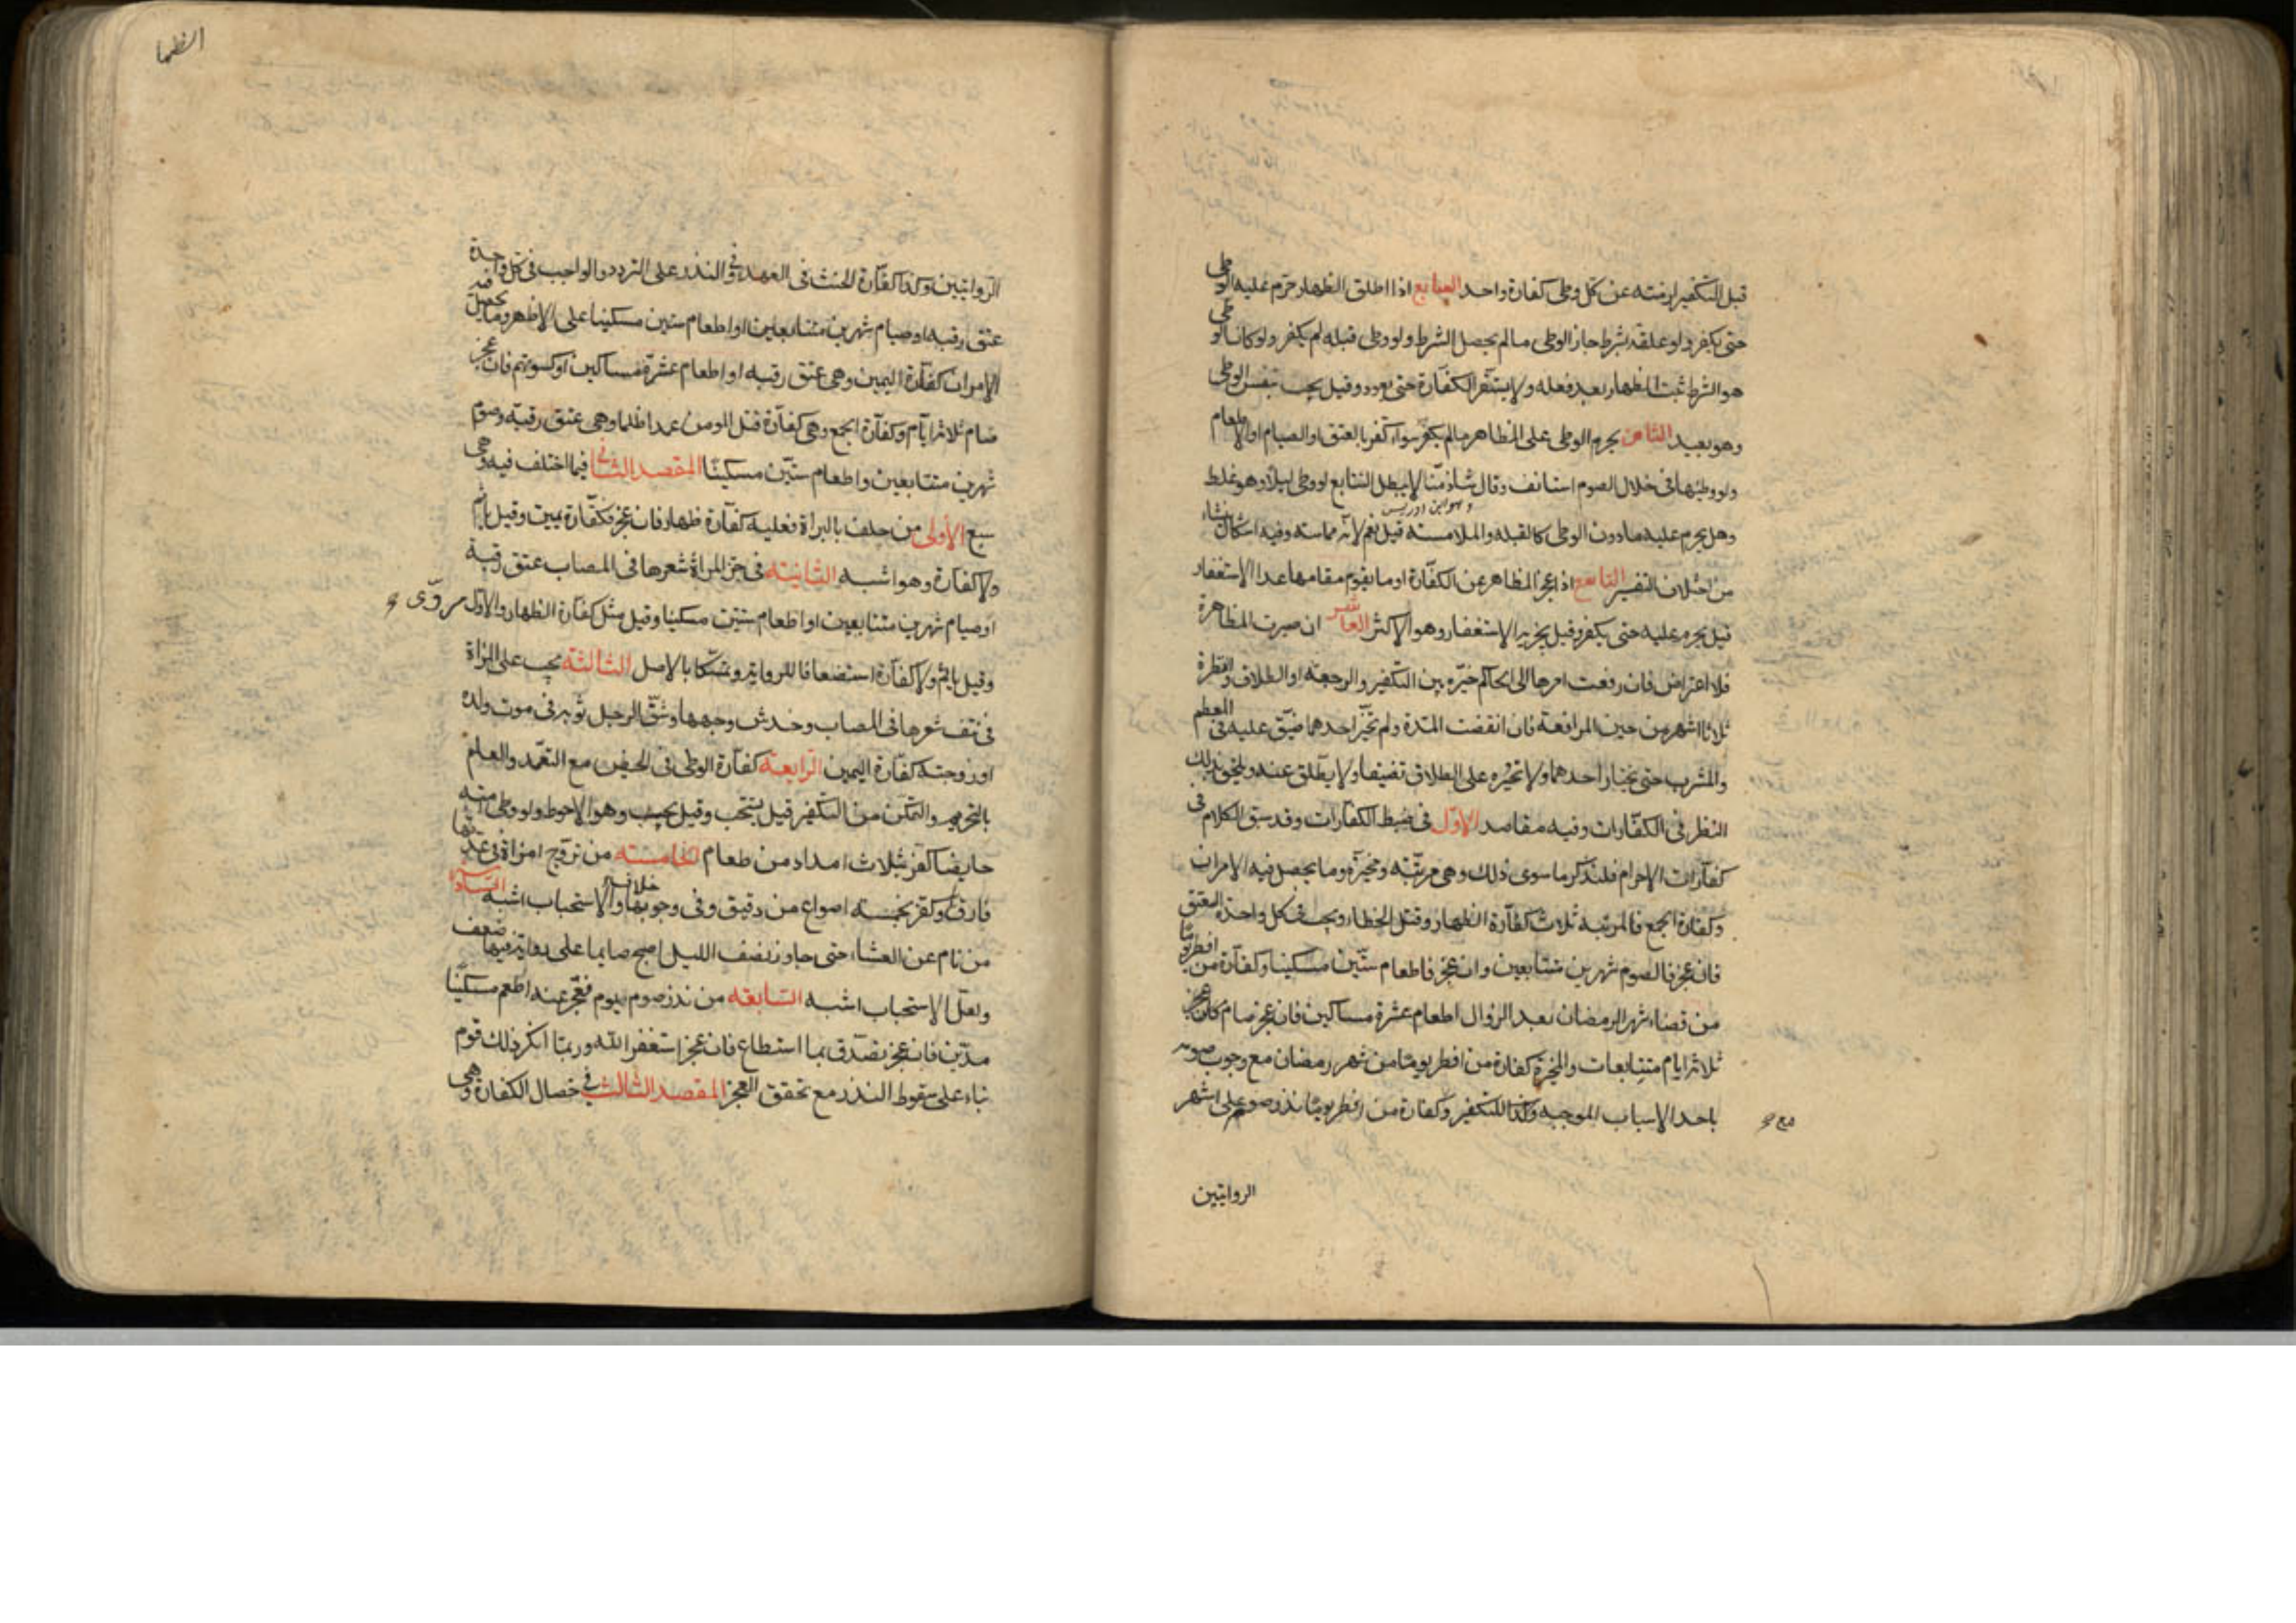 قبل التكفير لزمته عن كل وطى كفارة واحد السابع اذا اطلق الظهار حرم عليه الوطى
حتى يكفر ولو علقه بشرط جاز الوطى مالم يحصل الشرط ولو وطى قبله لم يكفر ولو كان الوطى
هو الشرط ثبت الظهار بعد فعله ولا يستقر الكفارة حتى يعود وقيل يجب بنفس الوطى
وهو بعيد الثامن يحرم الوطى على المظاهر مالم يكفر سواء كفر بالعتق او الصيام او الاطعام
ولو وطئها فى خلال الصوم استانف وقال شاذ منا لا يبطل التتابع لو وطى ليلا وهو غلط
وهو ابن ادريس
وهل يحرم عليه مادون الوطى كالقبله والملامسته قيل نعم لانه مماسته وفيه اشكال ينشاء
من اختلاف التفسير التاسع اذا عجز المظاهر عن الكفارة او ما يقوم مقامها عدا الاستغفار
قيل يحرم عليه حتى يكفر وقيل يجزيه الاستغفار وهو الاكثر العاشر ان صبرت المظاهرة
فلا اعتراض فان رفعت امرها الى الحاكم خيره بين التكفير والرجعة او الطلاق وانظره
ثلاثة اشهر من حين المرافعة فان انقضت المدة ولم يختر احدهما ضيق عليه فى المطعم
والمشرب حتى يختار احدهما ولا تجبره على الطلاق تضييقا ولا يطلق عنه ويلحق بذلك
النظر فى الكفارات وفيه مقاصد الاول فى ضبط الكفارات وقد سبق الكلام فى
كفارات الاحرام فلنذكر ما سوى ذلك وهى مرتبة ومخيرة وما يحصل فيه الامران
وكفارة الجمع فالمرتبه ثلاث كفارة الظهار وقتل الخطاء ويجب فى كل واحدة العتق
فان عجز فالصوم شهرين متتابعين وان عجز فاطعام ستين مسكينا وكفارة من افطر يوما
من قضاء شهر الرمضان بعد الزوال اطعام عشرة مساكين فان عجز صام
ثلاثة ايام متتابعات والمخيرة كفارة من افطر يوما من شهر رمضان مع وجوب صومه
باحد الاسباب الموجبه للتكفير وكفارة من افطر يوما نذر صومه على اشهر
الروايتين
الظها
الروايتين وكذا كفارة الحنث فى العهد وفى النذر على التردد والواجب فى كل واحدة
عتق رقبه او صيام شهرين متتابعين او اطعام ستين مسكينا على الاظهر وما يحصل فيه
الامران كفارة اليمين وهى عتق رقبه او اطعام عشرة مساكين او كسوتهم فان عجز
صام ثلاثة ايام وكفارة الجمع وهى كفارة قتل المومن عمدا ظلما وهى عتق رقبة وصوم
شهرين متتابعين واطعام ستين مسكينا المقصد الثانى فيما اختلف فيه وهى
سبع الأولى من حلف بالبراة فعليه كفارة ظهار فان عجز فكفارة يمين وقيل ياثم
ولا كفارة وهو اشبه الثانيته فى جز المراة شعرها فى المصاب عتق رقبة
او صيام شهرين متتابعين او اطعام ستين مسكينا وقيل مثل كفارة الظهار والاول مروى
وقيل ياثم ولا كفارة استضعافا للرواية وتمسكا بالاصل الثالثة يجب على المراة
فى نتف شعرها فى المصاب وخدش وجهها وشق الرجل ثوبه فى موت ولده
او زوجته كفارة اليمين الرابعة كفارة الوطى فى الحيض مع التعمد والعلم
بالتحريم والتمكن من التكفير قيل يستحب وقيل يجب وهو الاحوط ولو وطى امته
حايضا كفر بثلاث امداد من طعام الخامسته من تزوج امراة فى عدتها
فارق وكفر بخمسه اصواع من دقيق وفى وجوبها خلاف والاستحباب اشبه السادسة
من نام عن العشاء حتى جاوز نصف الليل اصبح صايما على رواية فيها ضعف
ولعل الاستحباب اشبه السابعه من نذر صوم يوم فعجز عنه اطعم مسكينا
مدين فان عجز تصدق بما استطاع فان عجز استغفر الله وربما انكر ذلك قوم
بناء على سقوط النذر مع تحقق العجز المقصد الثالث فى خصال الكفارة وهى